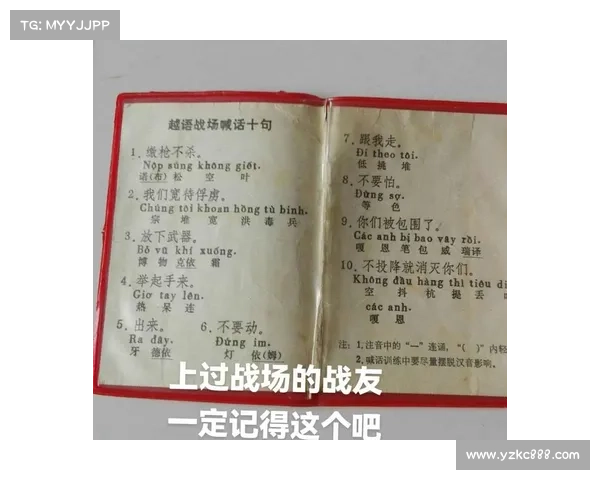 TG: MYYJJPP
越语战场喊话十句
1、缴枪不杀。
Nộp súng không giết.
诺(布) 松 空 叶
2、我们宽待俘虏。
Chúng tôi khoan hồng tù binh.
宗 堆 宽 洪 毒 兵
3、放下武器。
Bỏ vũ khí xuống.
博 物 克依 霜
4、举起手来。
Giơ tay lên.
热 呆 连
5、出来。 6、不要动。
Ra đây. Đứng im.
牙 德依 灯 依(姆)
7、跟我走。
Đi theo tôi.
低 挑 堆
8、不要怕。
Đừng sợ.
等 色
9、你们被包围了。
Các anh bị bao vây rồi.
嘎 恩 笔 包 威 瑞译
10、不投降就消灭你们。
Không đầu hàng thì tiêu di
空 抖 杭 提 丢
các anh.
嘎 恩
注：1.注音中的“一”连诵，“( )”内轻
2.喊话训练中要尽量摆脱汉音影响。
上过战场的战友
一定记得这个吧
www.yzkc888.com